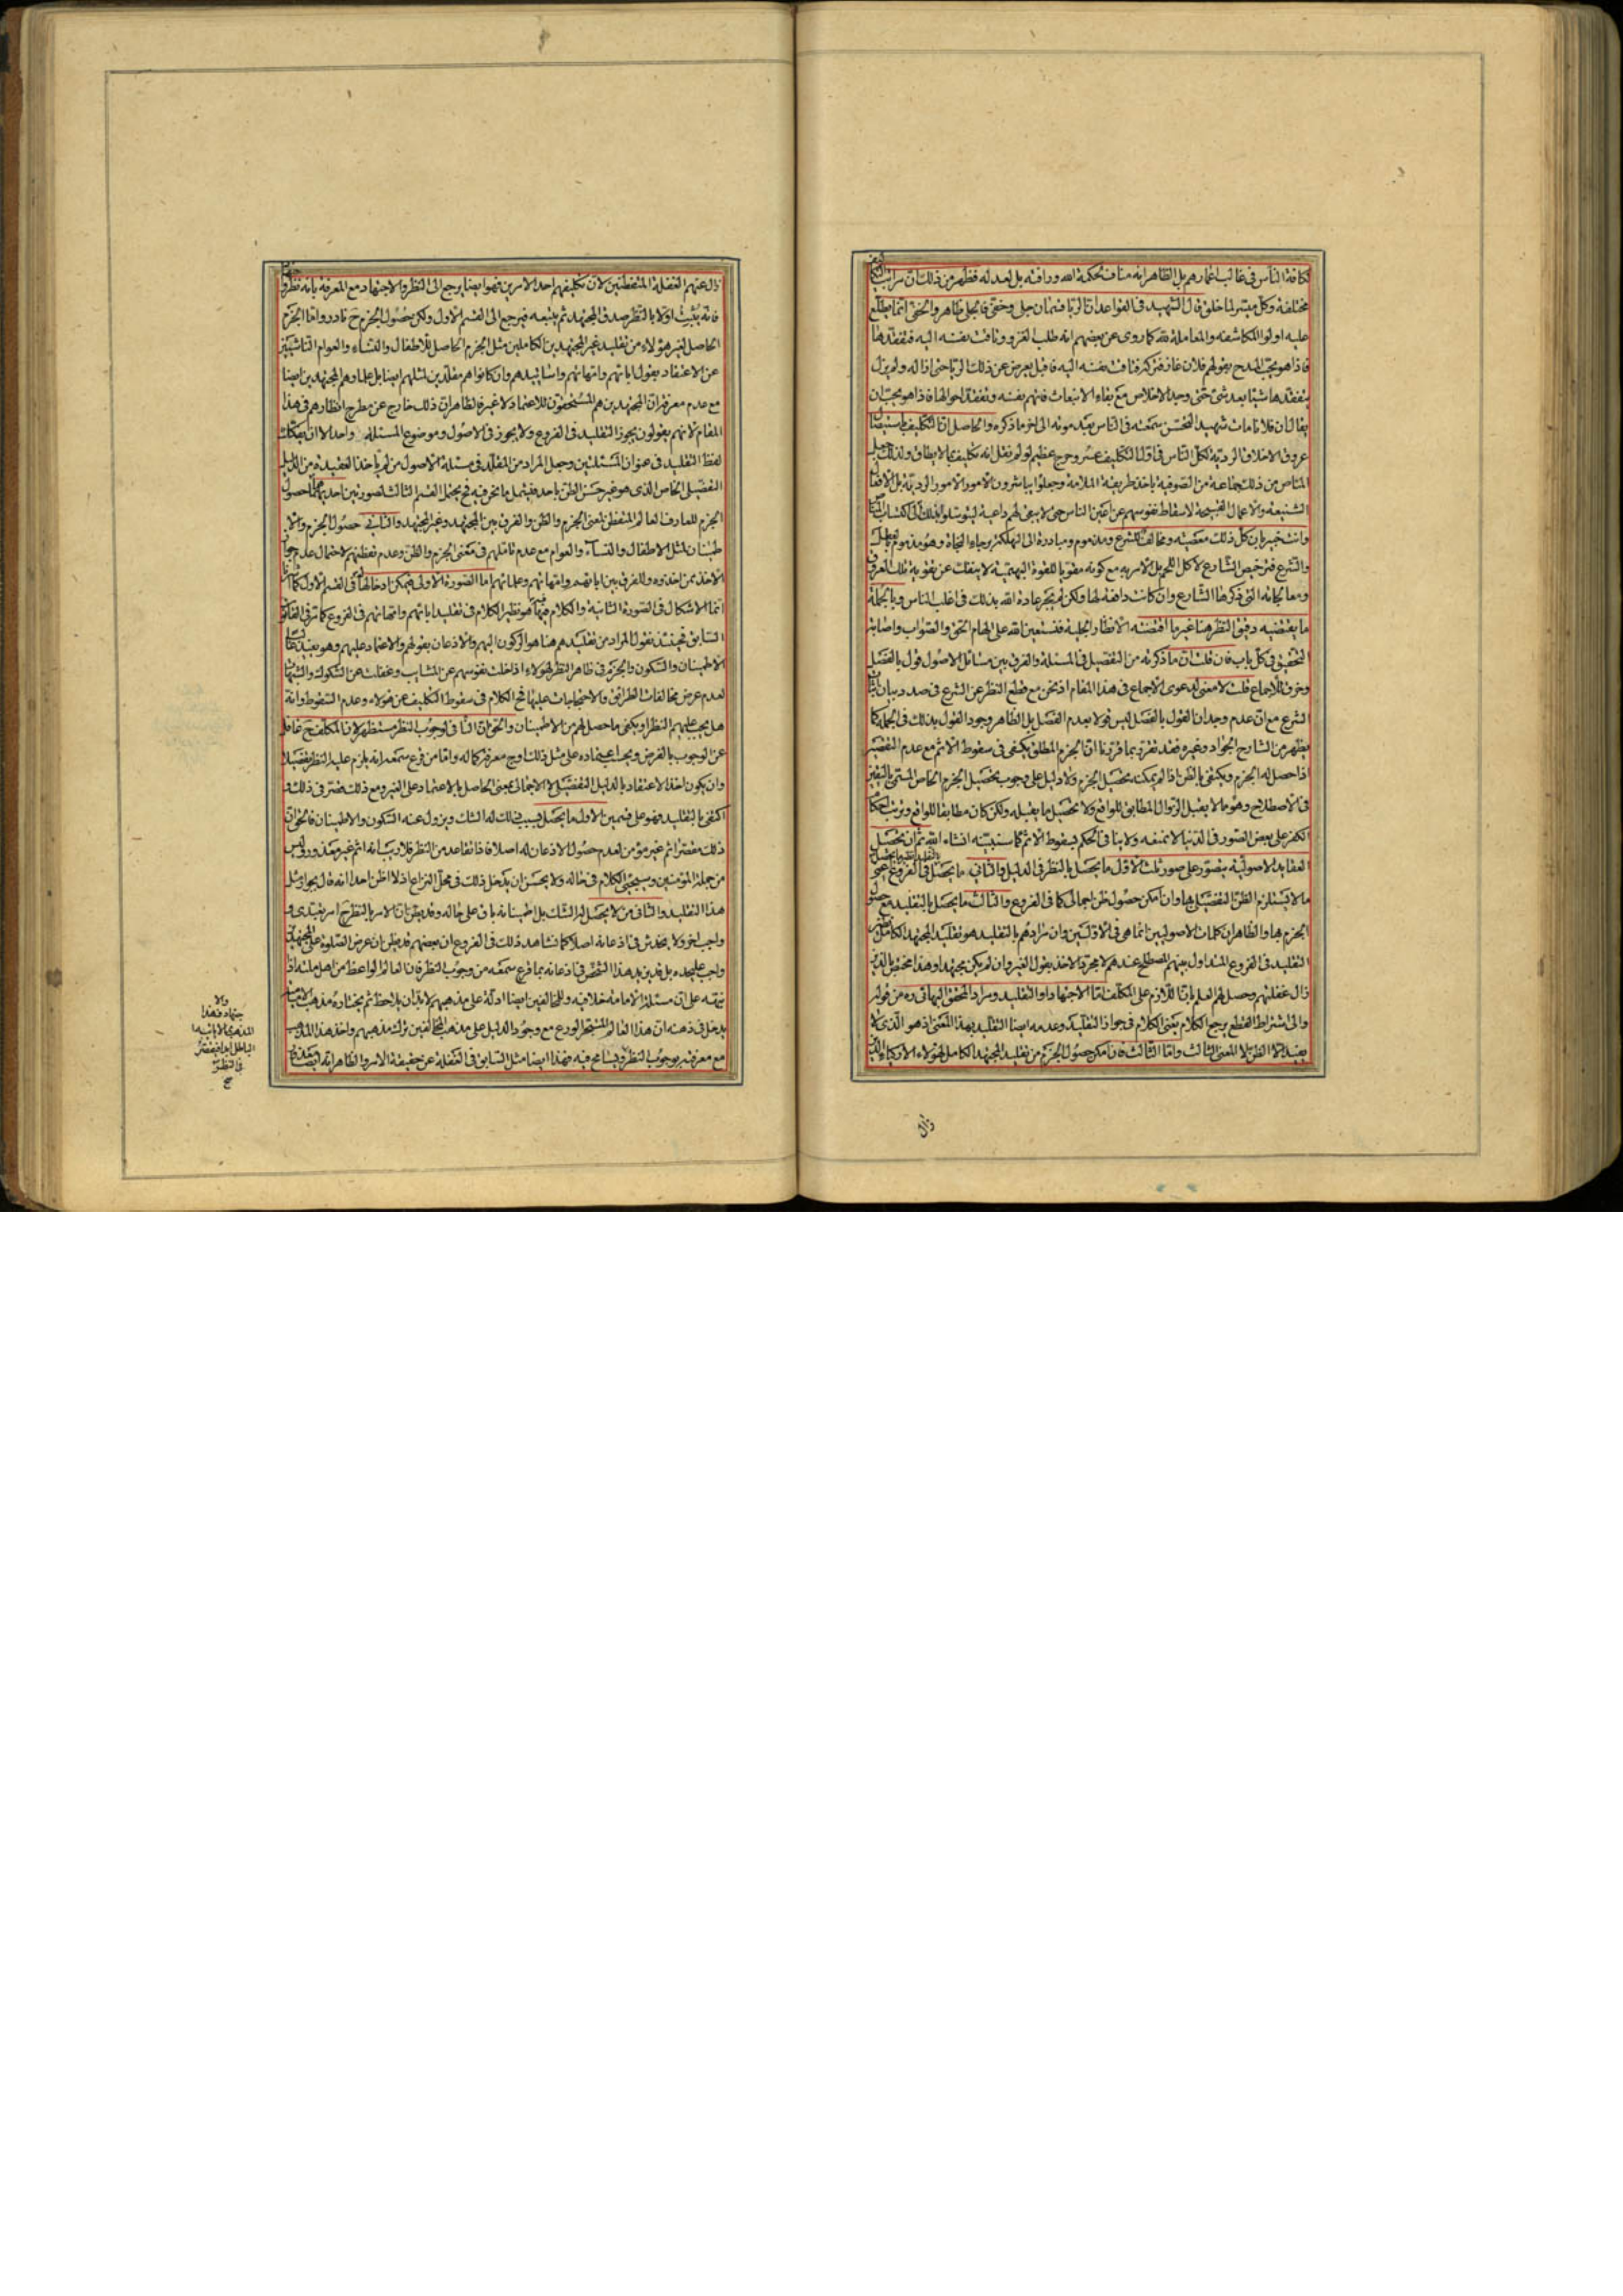 لكافة الناس في غالب اعمارهم بل الظاهر انه مناف لحكمة الله ورافته بل لعدله فظهر من ذلك ان مراتب
مختلفة وكل ميسر لما خلق قال الشهيد في القواعد ان الريا قسمان جلي وخفي فالجلي ظاهر والخفي انما يطلع
عليه اولوا المكاشفة والمعاملة لله كما روى عن بعضهم انه طلب الغزو وتاقت نفسه اليه فتفقدها
فاذا هو يحب المدح بقولهم فلان غاز فتركه فتاقت نفسه اليه فاقبل يعرض عن ذلك الريا حتى ازاله ولم يزل
يتفقدها شيئا بعد شئ حتى وجد الاخلاص مع بقاء الانبعاث فاتهم نفسه وتفقد احوالها فاذا هو يحب ان
يقال ان فلانا مات شهيدا لتحسن سمعته في الناس بعد موته الى اخر ما ذكره والحاصل ان التكليف باستيصال
عروق الاخلاق الردية لكل الناس في اول التكليف عسر وحرج عظيم لو لم نقل انه تكليف بما لا يطاق ولذلك
الناس من ذلك جماعة من الصوفية باخذ طريقة الملامة وجعلوا يباشرون الامور الردية بل الافعال
الشنيعة والاعمال القبيحة لاسقاط نفوسهم عن اعين الناس حتى لا يبقى لهم داعية ليتوسلوا بذلك الى اكتساب
وانت خبير بان كل ذلك معصية ومخالف للشرع ومذموم ومبادرة الى الهلكة برجاء النجاة وهو مذموم
والشرع فترخيص الشارع لاكل اللحم بل الامر به مع كونه مقويا للقوة البهيمية لا ينفك عن تقوية تلك العروق
ومعالجاته التي ذكرها الشارع وان كانت دافعة لها ولكن لم يجر عادة الله بذلك في اغلب الناس وبالجملة
ما يقتضيه دقيق النظر هنا غير ما اقتضته الانظار الجلية فنستعين الله على الهام الحق والصواب واصابة
التحقيق في كل باب فان قلت ان ما ذكرته من التفصيل في المسئلة والفرق بين مسائل الاصول قول بالفصل
وخرق للاجماع قلت لا معنى لدعوى الاجماع في هذا المقام اذ نحن مع قطع النظر عن الشرع في صدد بيان
الشرع مع ان عدم وجدان القول بالفصل ليس قولا بعدم الفصل بل الظاهر وجود القول بذلك في الجملة كما
يظهر من الشارح الجواد وغيره فقد تقرر بما قررنا ان الجزم المطلق يكفي في سقوط الاثم مع عدم التقصير
اذا حصل له الجزم ويكتفي بالظن اذا لم يمكنه تحصيل الجزم ولا دليل على وجوب تحصيل الجزم الخاص المسمى باليقين
في الاصطلاح وهو ما لا يقبل الزوال المطابق للواقع ولا تحصيل ما يقبله ولكن كان مطابقا للواقع وترتب احكام
الكفر على بعض الصور في الدنيا لا نمنعه ولا ينافي الحكم بسقوط الاثم كما سنبينه انشاء الله ثم ان تحصيل
العقايد الاصولية يتصور على صور ثلث الاول ما يحصل بالنظر في الدليل والثاني ما يحصل في الفروع
ما لا يستلزم الظن التفصيلي بها وان امكن حصول ظن اجمالي كما في الفروع والثالث ما يحصل بالتقليد مع حصول
الجزم بها والظاهر ان كلمات الاصوليين انما هي في الاولين وان مرادهم بالتقليد هو تقليد المجتهد الكامل
التقليد في الفروع المتداول بينهم المصطلح عندهم لا مجرد الاخذ بقول الغير وان لم يكن مجتهدا وهذا مختص بالذين
زال غفلتهم وحصل لهم العلم بان اللازم على المكلف اما الاجتهاد او التقليد ومراد المحقق البهائي ره من قوله
والى اشتراط القطع يرجع الكلام يعني الكلام في جواز التقليد وعدمه ايضا التقليد بهذا المعنى اذ هو الذي لا
يفيد الا الظن لا المعنى الثالث واما الثالث فان امكن حصول الجزم من تقليد المجتهد الكامل لهؤلاء الاذكياء الذين
زال
زال عنهم الغفلة المتفطنين لان تكليفهم احد الامرين فهو ايضا يرجع الى النظر والاجتهاد مع المعرفة بانه نظر
فانه يثبت اولا بالنظر صدق المجتهد ثم يتبعه فيرجع الى القسم الاول ولكن حصول الجزم ح نادر واما الجزم
الحاصل لغير هؤلاء من تقليد غير المجتهدين الكاملين مثل الجزم الحاصل للاطفال والنساء والعوام الناشئين
عن الاعتقاد بقول ابائهم وامهاتهم واساتيدهم وان كانوا هم مقلدين لمثلهم ايضا بل علماؤهم المجتهدين ايضا
مع عدم معرفة ان المجتهدين هم المستحقون للاعتماد لا غير فالظاهر ان ذلك خارج عن مطرح انظارهم في هذا
المقام لانهم يقولون يجوز التقليد في الفروع ولا يجوز في الاصول وموضوع المسئلة واحد الا ان يفكك
لفظ التقليد في عنوان المسئلتين وجعل المراد من المقلد في مسئلة الاصول من لم ياخذ العقيدة من الدليل
التفصيلي الخاص الذي هو غير حسن الظن باحد فيشمل ما نحن فيه فح يحتمل القسم الثالث لصورتين احديهما حصول
الجزم للعارف العالم المتفطن لمعنى الجزم والظن والفرق بين المجتهد وغير المجتهد والثاني حصول الجزم والا
طمينان لمثل الاطفال والنساء والعوام مع عدم تاملهم في معنى الجزم والظن وعدم تفطنهم لاحتمال عدم جواز
الاخذ ممن اخذوه والفرق بين ابائهم وامهاتهم وعلمائهم اما الصورة الاولى فيمكن ادخالها في القسم الاول كما
انما الاشكال في الصورة الثانية والكلام فيها هو نظير الكلام في تقليد ابائهم وامهاتهم في الفروع كما مر في القانون
السابق فحينئذ نقول المراد من تقليدهم هنا هو الركون اليهم والاذعان بقولهم والاعتماد عليهم وهو يفيد
الاطمينان والسكون والجزم في ظاهر النظر لهؤلاء اذ اخلت نفوسهم عن الشبهات وغفلت عن الشكوك والشبهات
لعدم عرض مخالفات الطرائق والاحتجاجات عليها فح الكلام في سقوط التكليف عن هؤلاء وعدم السقوط وانه
هل يجب عليهم النظر او يكفي ما حصل لهم من الاطمينان والحق ان النافي لوجوب النظر مستظهر لان المكلف ح غافل
عن الوجوب بالفرض ويجب اعتماده على مثل ذلك اوج معرفته وكماله واما من قرع سمعه انه يلزم عليه النظر بتفصيلا
وان يكون اخذ الاعتقاد بالدليل التفصيلي لا الاجمالي بمعنى الحاصل بالاعتماد على الغير ومع ذلك قصر في ذلك و
اكتفى بالتقليد فهو على قسمين الاول ما يحصل بسبب ذلك له الشك ويزول عنه السكون والاطمينان فالحق ان
ذلك مقصر اثم غير مؤمن لعدم حصول الاذعان له اصلا فاذا تقاعد من النظر فلا ريب انه اثم غير معذور وليس
من جملة المؤمنين وسيجئ الكلام في حاله ولا يحسن ان يدخل ذلك في محل النزاع اذ لا اظن احدا انه قال بجواز مثل
هذا التقليد والثاني من لا يحصل له الشك بل اطمينانه باق على حاله وقد يظن ان الامر بالنظر ح امر تعبدي و
واجب اخر ولا يخدش في اذعانه اصلا كما نشاهد ذلك في الفروع ان بعضهم قد يظن ان عرض الصلوة على المجتهد
واجب عليحده بل قد يزيد هذا الشخص في اذعانه بما قرع سمعه من وجوب النظر فان العالم الواعظ من اهل ملته اذا
نبهه على ان مسئلة الامامة خلافية وللمخالفين ايضا ادلة على مذهبهم لا بد ان يلاحظ ثم يختار مذهب الامامية
يدخل في ذهنه ان هذا العالم المتبحر الورع مع وجود الدليل على مذهب المخالفين ترك مذهبهم واخذ هذا المذهب
مع معرفته بوجوب النظر ويسامح فيه فهذا ايضا مثل السابق في الغفلة عن حقيقة الامر والظاهر انه ايضا
والا
جتهاد فهذا
المذهب
الباطل
في النظر